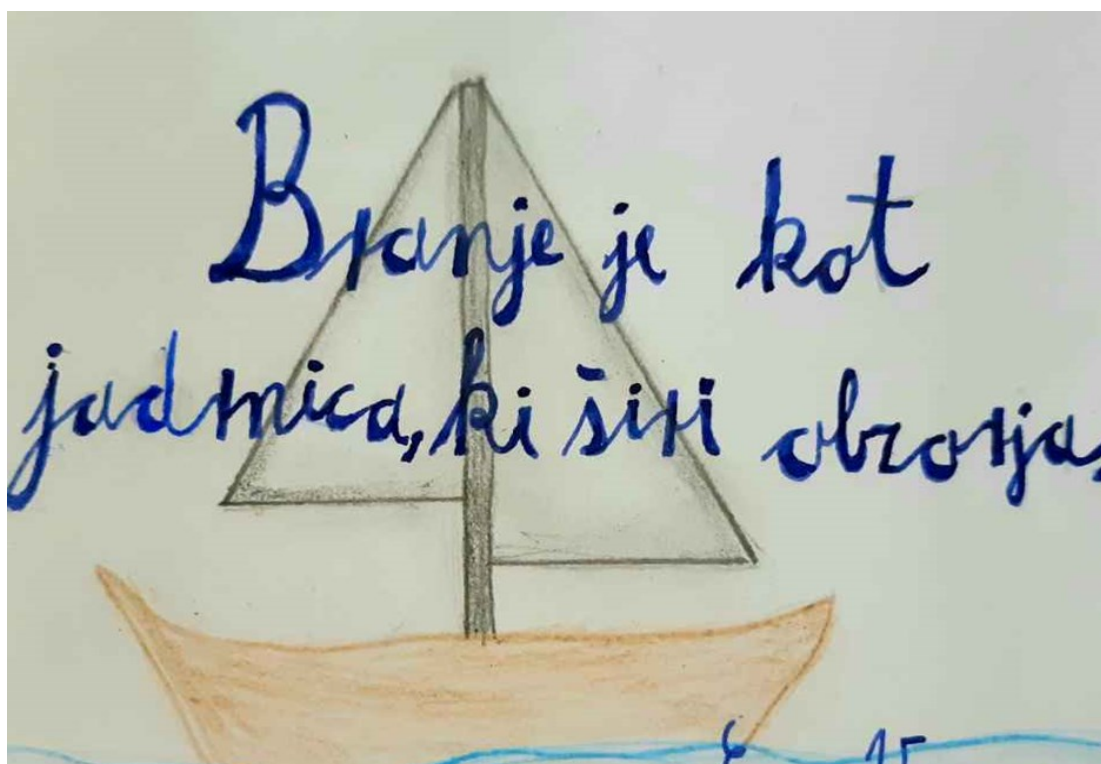 Branje je kot
jadrnica, ki širi obzorja,